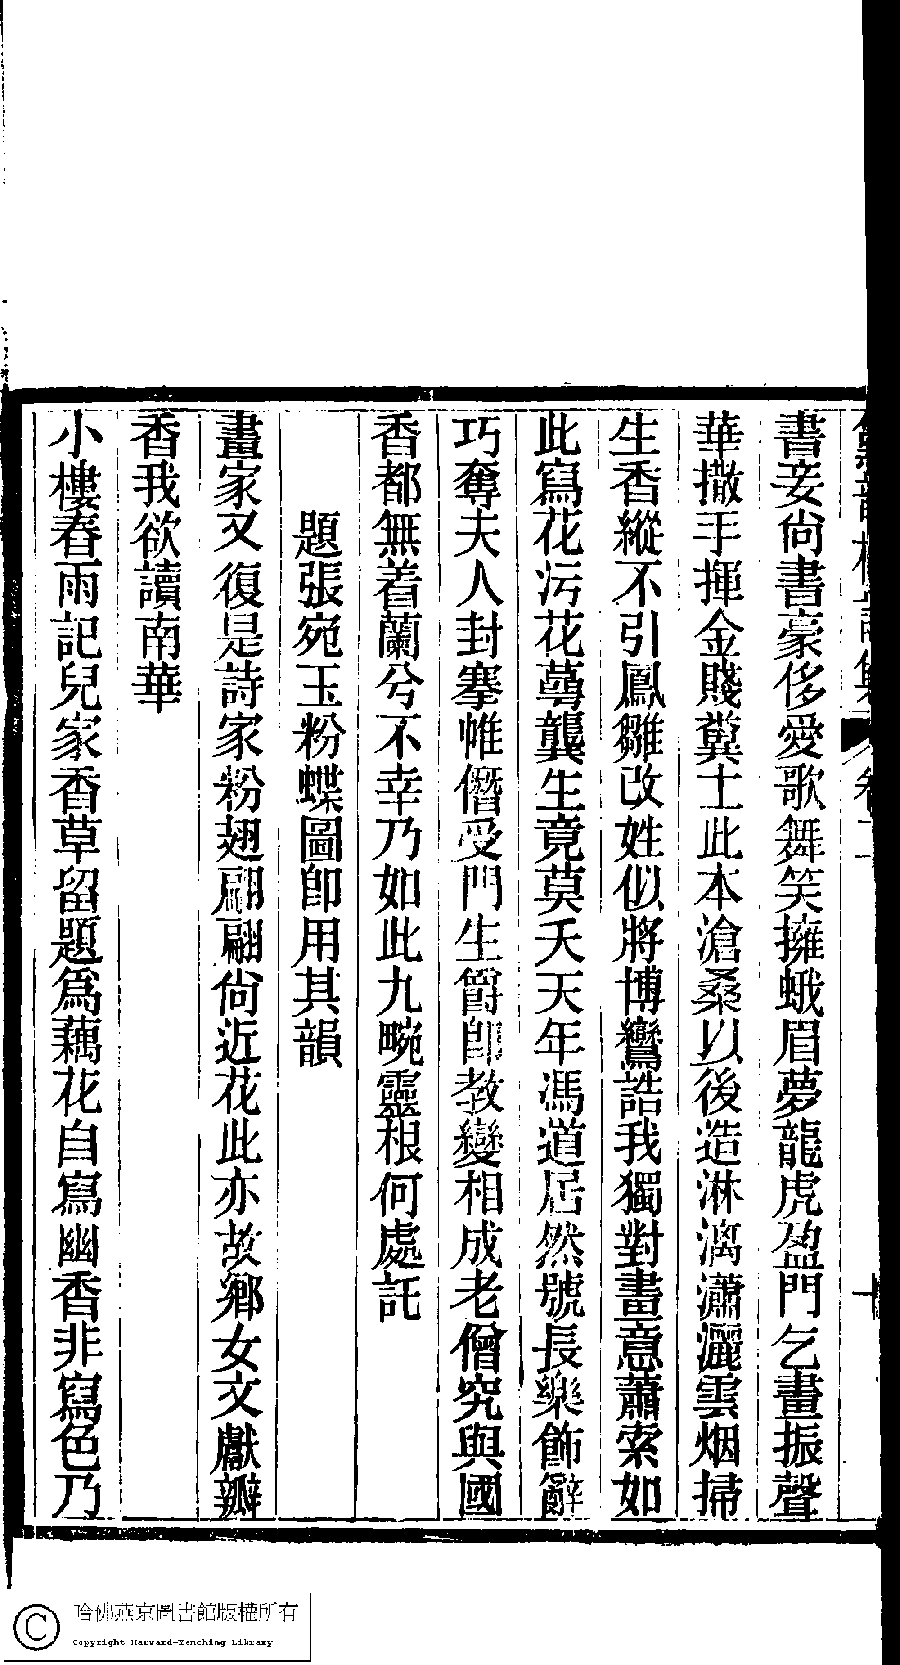 書妾尙書豪侈愛歌舞笑擁蛾眉夢龍虎盈門乞畫振聲
華撒手揮金賤糞土此本滄桑以後造淋漓瀟灑雲烟掃
生香縱不引鳳雛改姓似將博鸞誥我獨對畫意蕭索如
此寫花污花蕚龔生竟莫夭天年馮道居然號長樂飾辭
巧奪夫人封搴帷僭受門生爵卽教變相成老僧究與國
香都無着蘭兮不幸乃如此九畹靈根何處託
題張宛玉粉蝶圖卽用其韻
畫家又復是詩家粉翅翩翩尙近花此亦故鄉女文獻瓣
香我欲讀南華
小樓春雨記兒家香草留題爲藕花自寫幽香非寫色乃
卷二
十
哈佛燕京圖書館版權所有
Copyright Harvard-Yenching Library